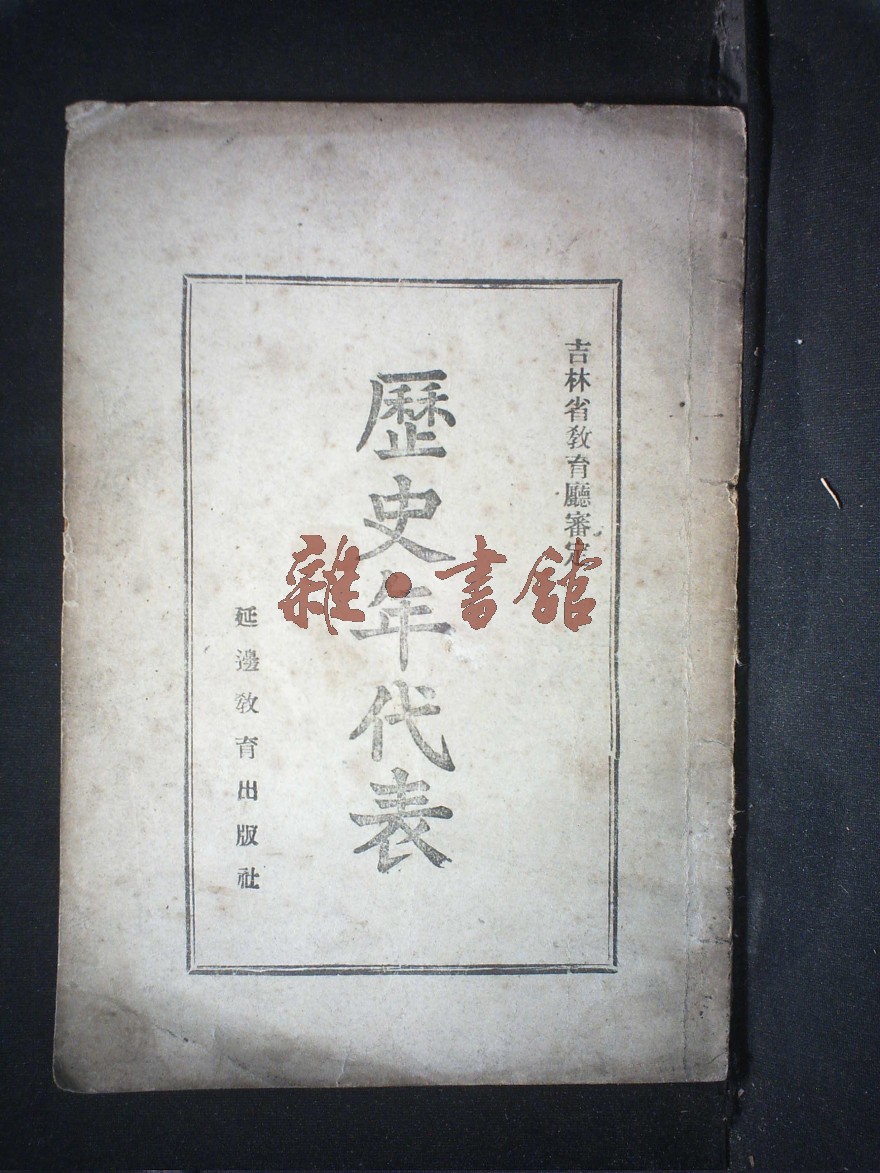 吉林省教育廳審定
歷史年代表
延邊教育出版社
雜·書館